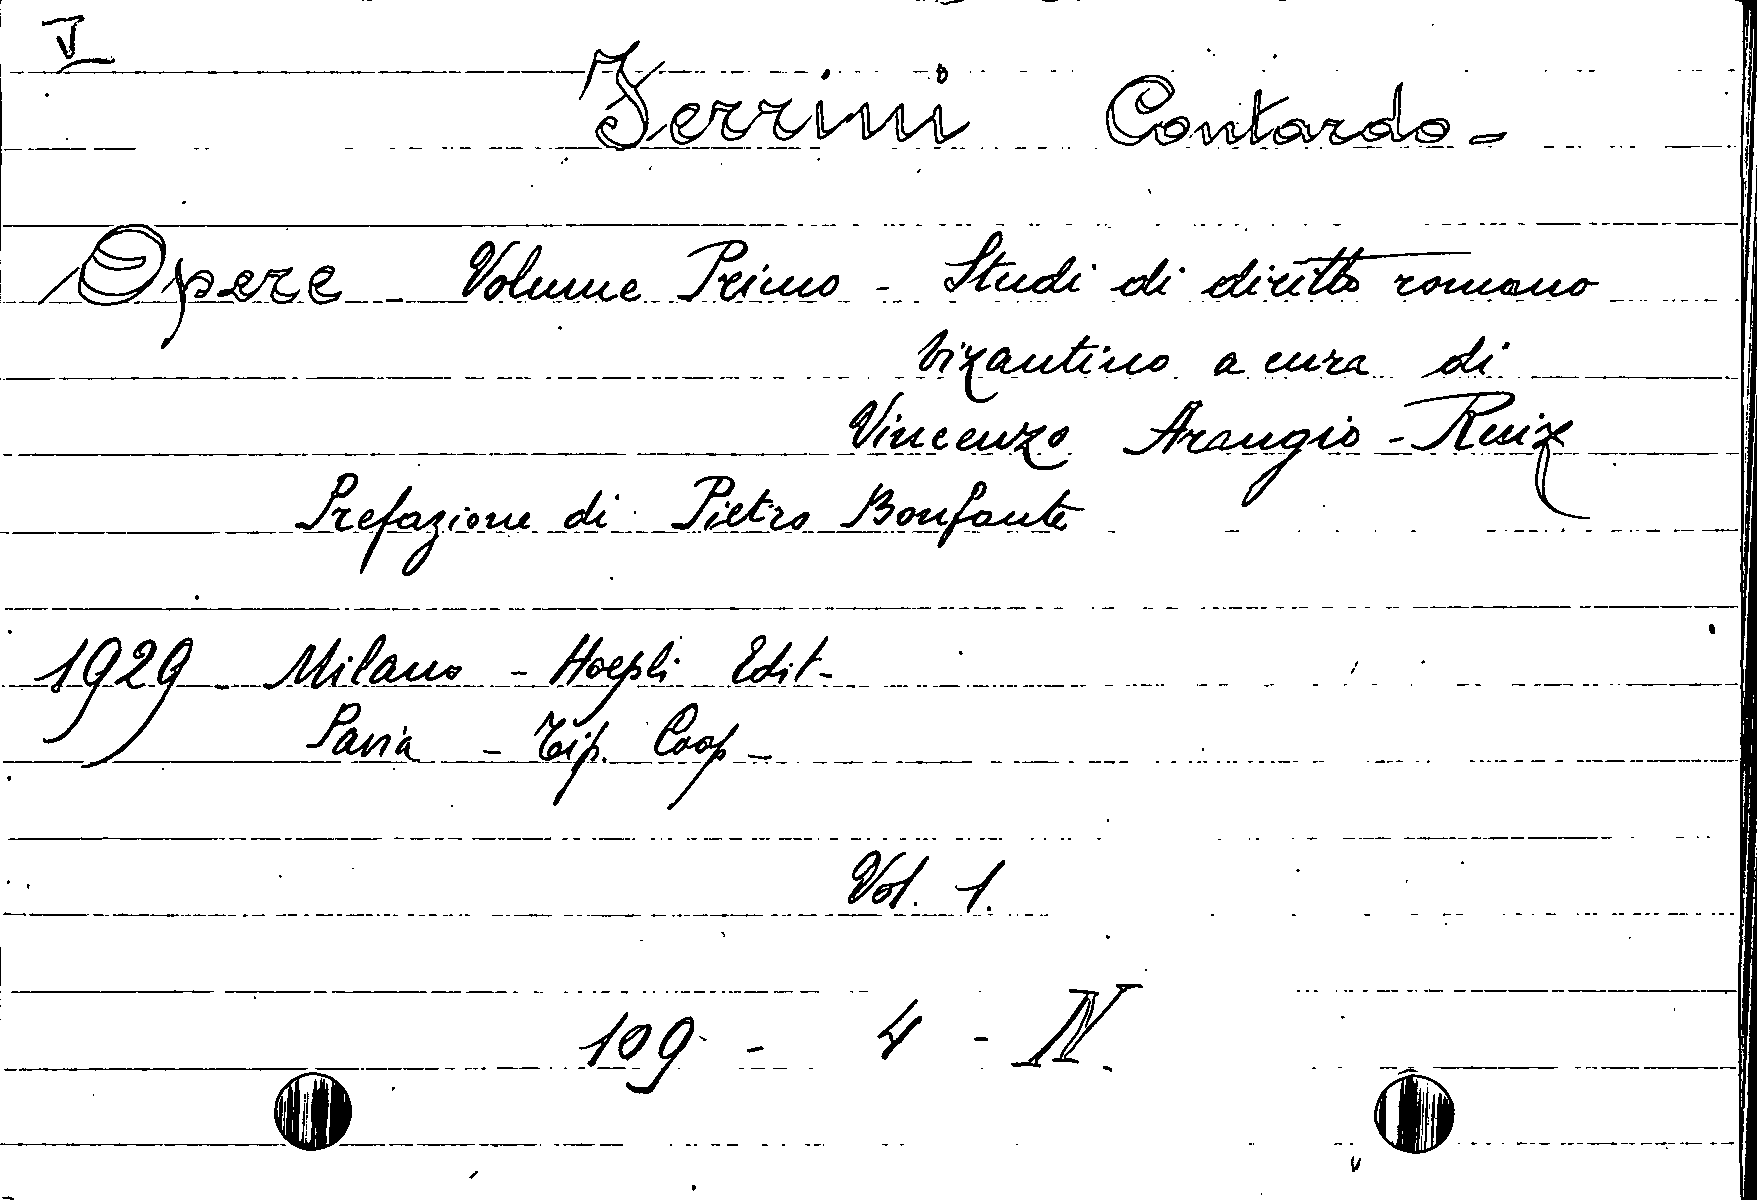 V
Ferrini Contardo -
Opere - Volume Primo - Studi di diritto romano
bizantino a cura di
Vincenzo Arangio - Ruiz
Prefazione di Pietro Bonfante
1929 - Milano - Hoepli Edit -
Pavia - Tip. Coop -
Vol. 1.
109 - 4 - N.